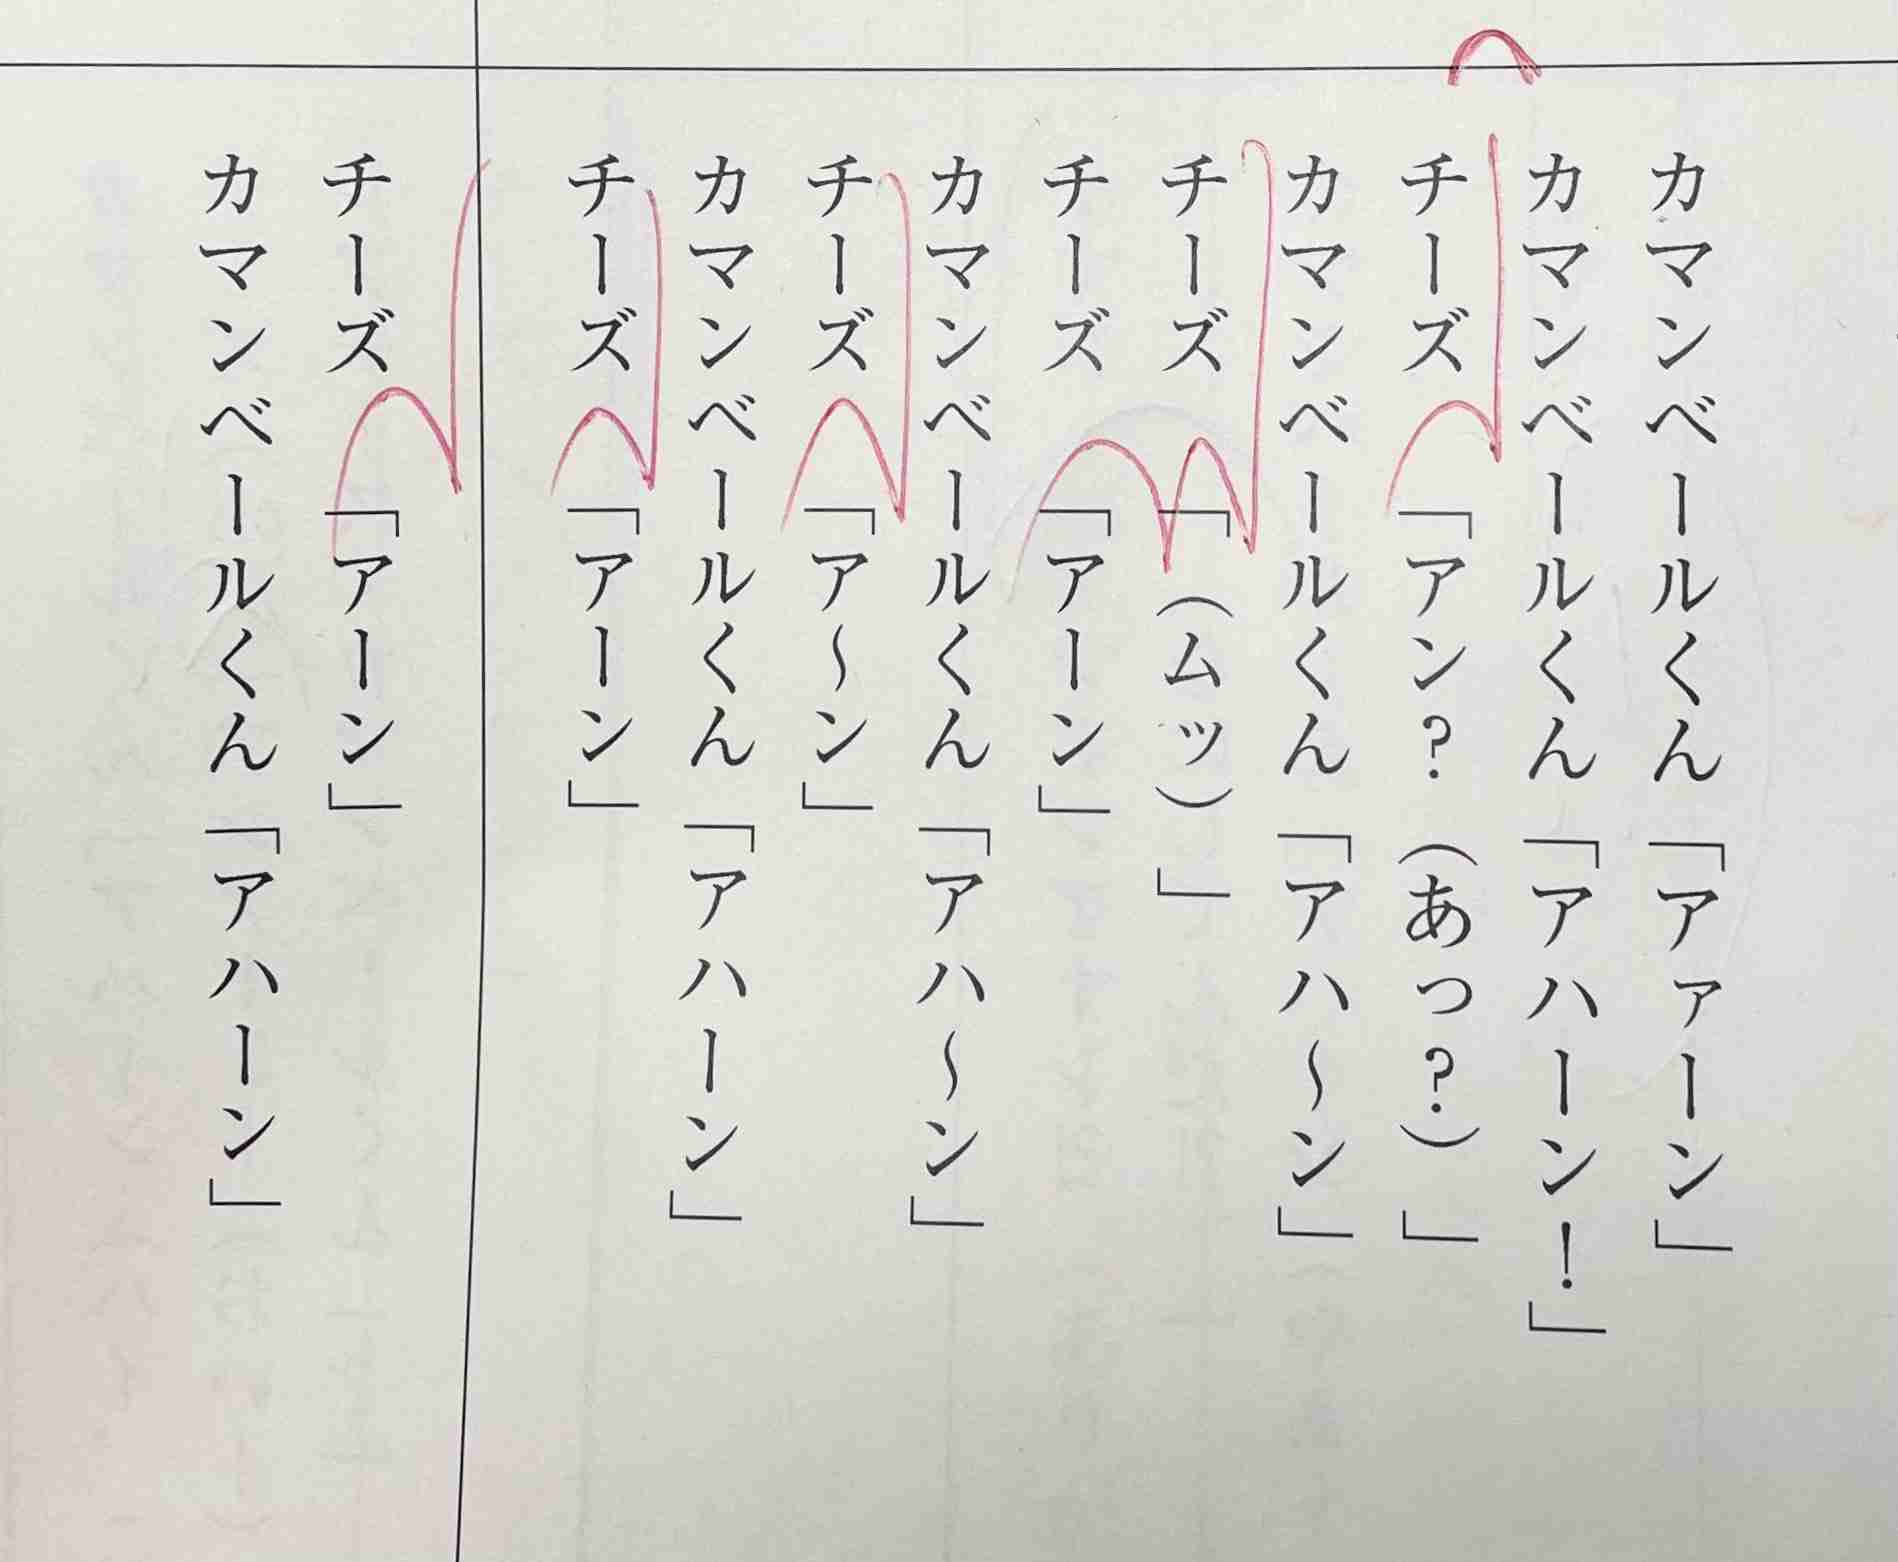 カマンベールくん「アァーン」
カマンベールくん「アハーン！」
チーズ「アン？（あっ？）」
カマンベールくん「アハ～ン」
チーズ「（ムッ）」
チーズ「アーン」
カマンベールくん「アハ～ン」
チーズ「ア～ン」
カマンベールくん「アハーン」
チーズ「アーン」
チーズ「アーン」
カマンベールくん「アハーン」